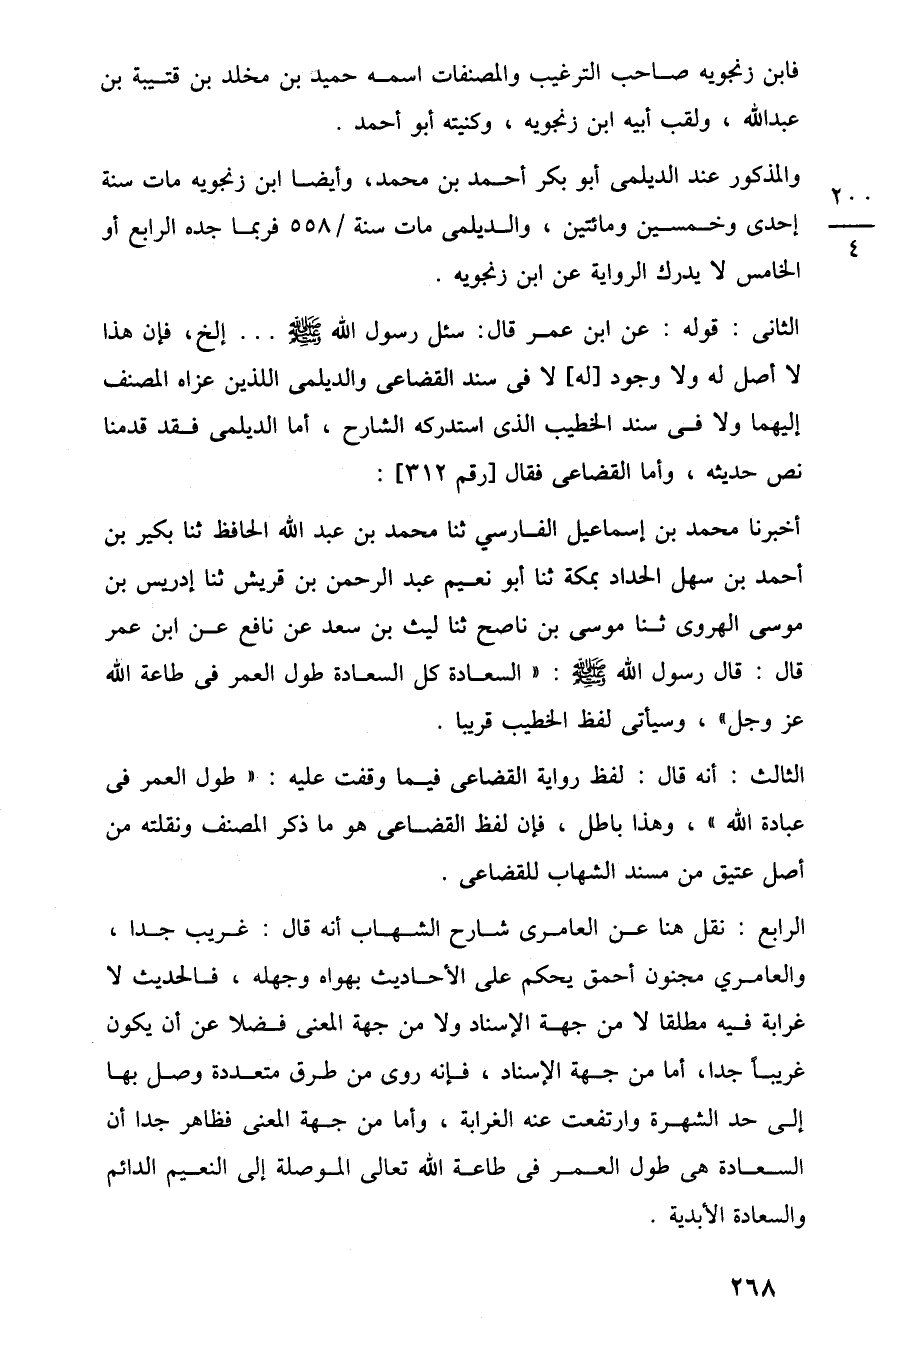 فابن زنجويه صاحب الترغيب والمصنفات اسمه حميد بن مخلد بن قتيبة بن
عبدالله ، ولقب أبيه ابن زنجويه ، وكنيته أبو أحمد .
والمذكور عند الديلمى أبو بكر أحمد بن محمد، وأيضا ابن زنجويه مات سنة
٢٠٠
٤
إحدى وخمسين ومائتين ، والديلمى مات سنة /٥٥٨ فربما جده الرابع أو
الخامس لا يدرك الرواية عن ابن زنجويه .
الثانى : قوله : عن ابن عمر قال: سئل رسول الله ﷺ ... إلخ، فإن هذا
لا أصل له ولا وجود [له] لا فى سند القضاعى والديلمى اللذين عزاه المصنف
إليهما ولا فى سند الخطيب الذى استدركه الشارح ، أما الديلمى فقد قدمنا
نص حديثه ، وأما القضاعى فقال [رقم ٣١٢] :
أخبرنا محمد بن إسماعيل الفارسي ثنا محمد بن عبد الله الحافظ ثنا بكير بن
أحمد بن سهل الحداد بمكة ثنا أبو نعيم عبد الرحمن بن قريش ثنا إدريس بن
موسى الهروى ثنا موسى بن ناصح ثنا ليث بن سعد عن نافع عن ابن عمر
قال : قال رسول الله ﷺ : « السعادة كل السعادة طول العمر فى طاعة الله
عز وجل» ، وسيأتى لفظ الخطيب قريبا .
الثالث : أنه قال : لفظ رواية القضاعى فيما وقفت عليه : « طول العمر فى
عبادة الله » ، وهذا باطل ، فإن لفظ القضاعى هو ما ذكر المصنف ونقلته من
أصل عتيق من مسند الشهاب للقضاعى .
الرابع : نقل هنا عن العامرى شارح الشهاب أنه قال : غريب جدا ،
والعامري مجنون أحمق يحكم على الأحاديث بهواه وجهله ، فالحديث لا
غرابة فيه مطلقا لا من جهة الإسناد ولا من جهة المعنى فضلا عن أن يكون
غريباً جدا، أما من جهة الإسناد ، فإنه روى من طرق متعددة وصل بها
إلى حد الشهرة وارتفعت عنه الغرابة ، وأما من جهة المعنى فظاهر جدا أن
السعادة هى طول العمر فى طاعة الله تعالى الموصلة إلى النعيم الدائم
والسعادة الأبدية .
٢٦٨